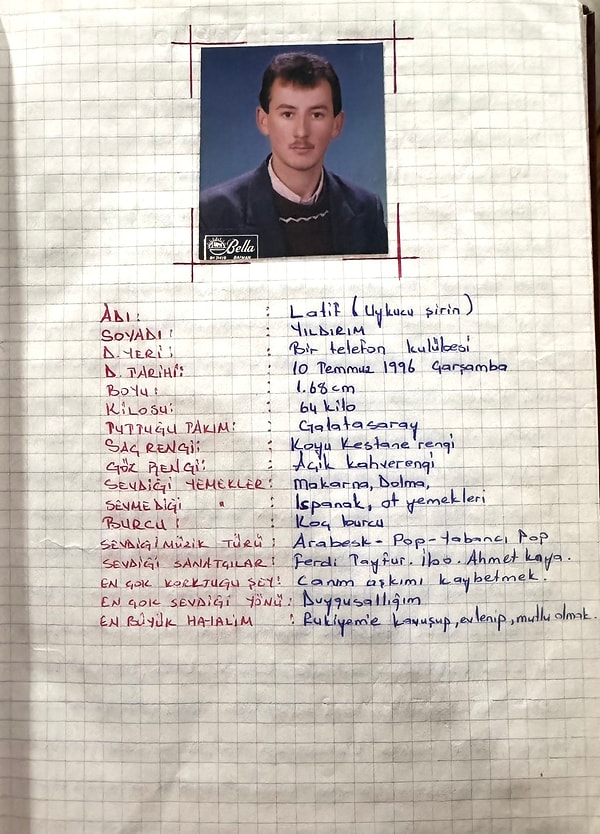 Bella
ADI : Latif (Uykucu şirin)
SOYADI : YILDIRIM
D.YERİ : Bir telefon kulübesi
D.TARİHİ : 10 Temmuz 1996 Çarşamba
BOYU : 1.68 cm
KİLOSU : 64 kilo
TUTTUĞU TAKIM : Galatasaray
SAÇ RENGİ : Koyu Kestane rengi
GÖZ RENGİ : Açık kahverengi
SEVDİĞİ YEMEKLER : Makarna, Dolma,
SEVMEDİĞİ " : Ispanak, ot yemekleri
BURCU : Koç burcu
SEVDİĞİ MÜZİK TÜRÜ : Arabesk - Pop - Yabancı Pop
SEVDİĞİ SANATÇILAR : Ferdi Tayfur. İbo. Ahmet Kaya.
EN ÇOK KORKTUĞU ŞEY : Canım aşkımı kaybetmek.
EN ÇOK SEVDİĞİ YÖNÜ : Duygusallığım
EN BÜYÜK HAYALİM : Rukiyem'e kavuşup, evlenip, mutlu olmak.